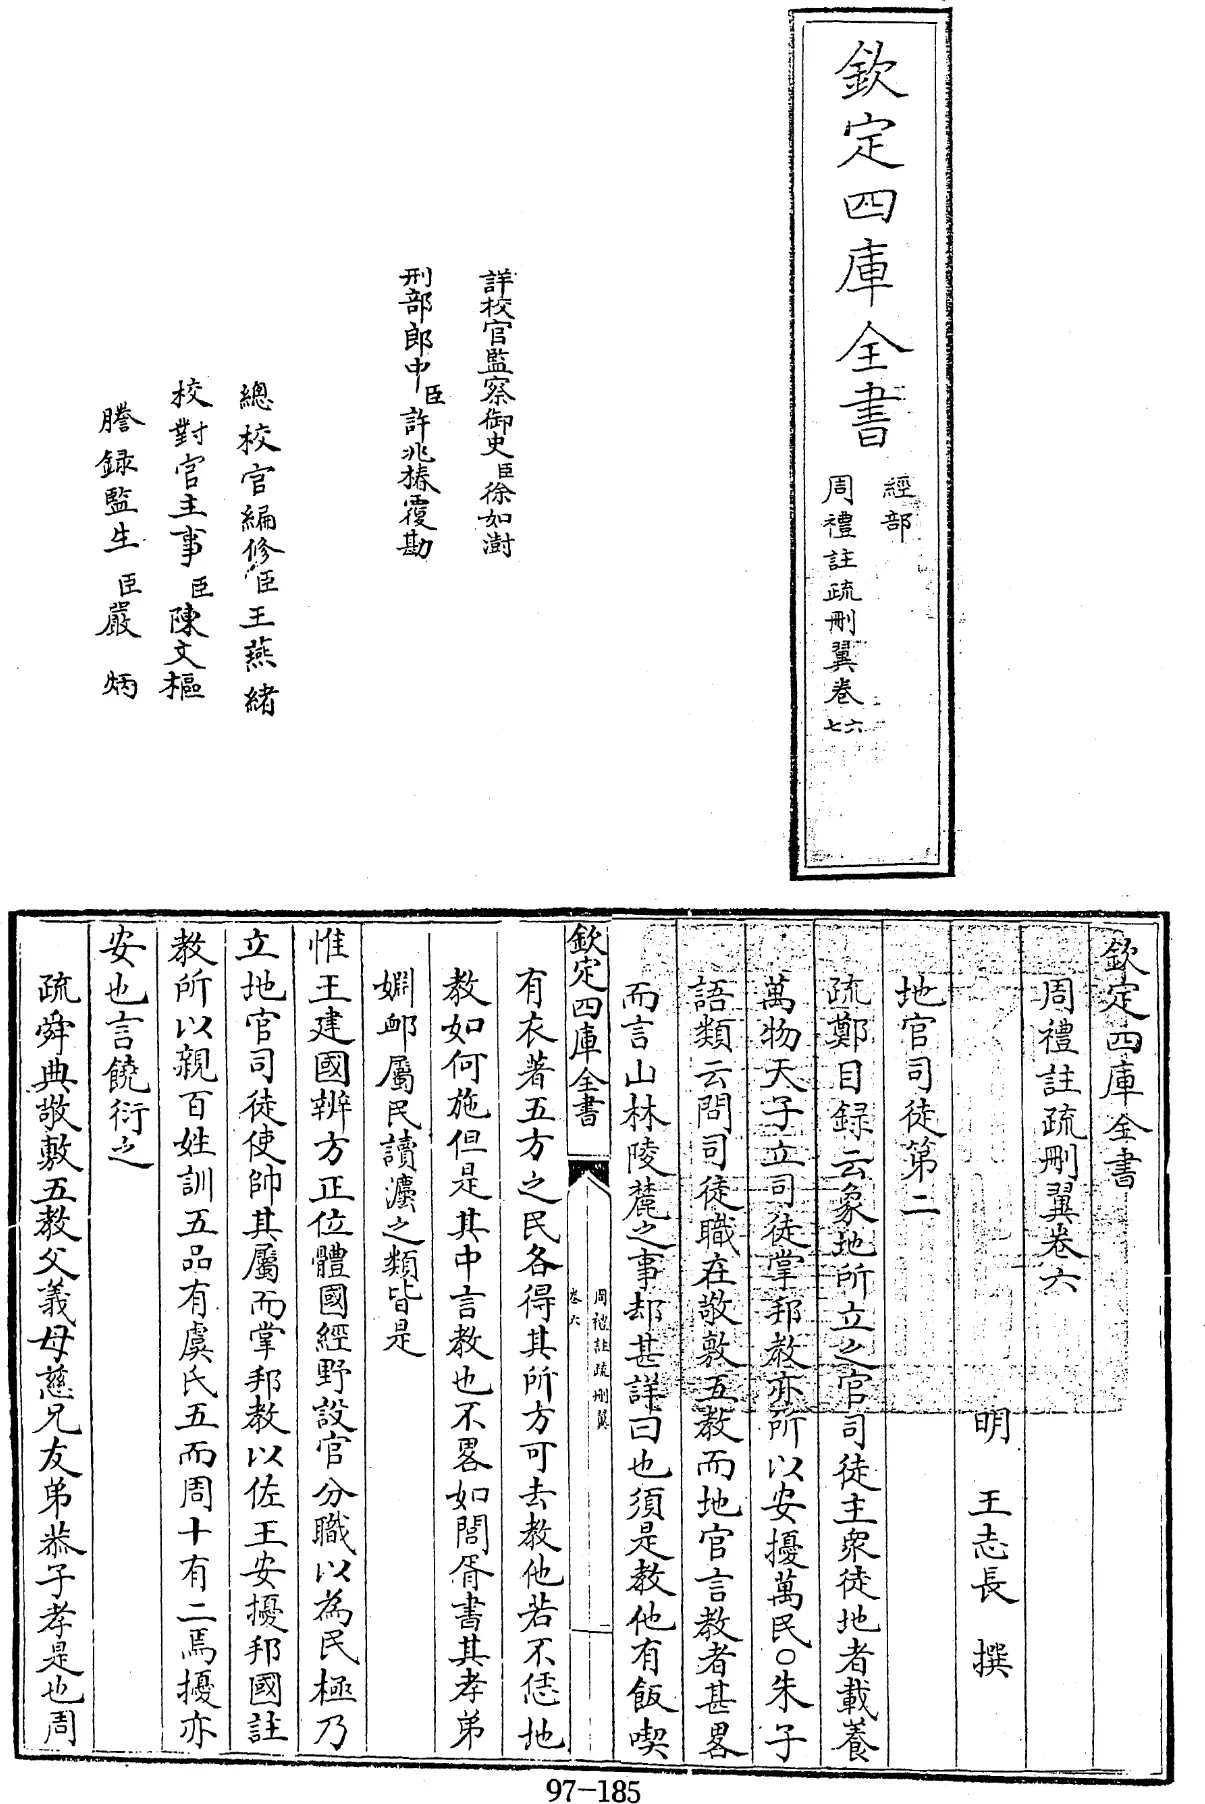 欽定四庫全書
經部
周禮註疏刪翼卷六七
詳校官監察御史臣徐如澍
刑部郎中臣許兆椿覆勘
總校官編修臣王燕緒
校對官主事臣陳文樞
謄錄監生臣嚴炳
欽定四庫全書
周禮註疏刪翼卷六
明 王志長 撰
地官司徒第二
疏鄭目録云象地所立之官司徒主衆徒地者載養
萬物天子立司徒掌邦教亦所以安擾萬民○朱子
語類云問司徒職在敬敷五教而地官言教者甚畧
而言山林陵麓之事却甚詳曰也須是教他有飯喫
欽定四庫全書
周禮註疏刪翼
卷六
一
有衣著五方之民各得其所方可去教他若不恁地
教如何施但是其中言教也不畧如閭胥書其孝弟
婣䘏屬民讀灋之類皆是
惟王建國辨方正位體國經野設官分職以為民極乃
立地官司徒使帥其屬而掌邦教以佐王安擾邦國註
教所以親百姓訓五品有虞氏五而周十有二焉擾亦
安也言饒衍之
疏舜典敬敷五教父義母慈兄友弟恭子孝是也周
97-185